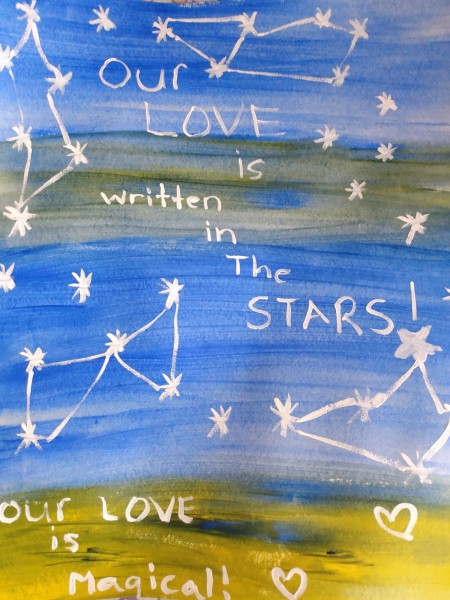 Our
LOVE
is
written
in
The
STARS!
OUR LOVE
is
Magical!